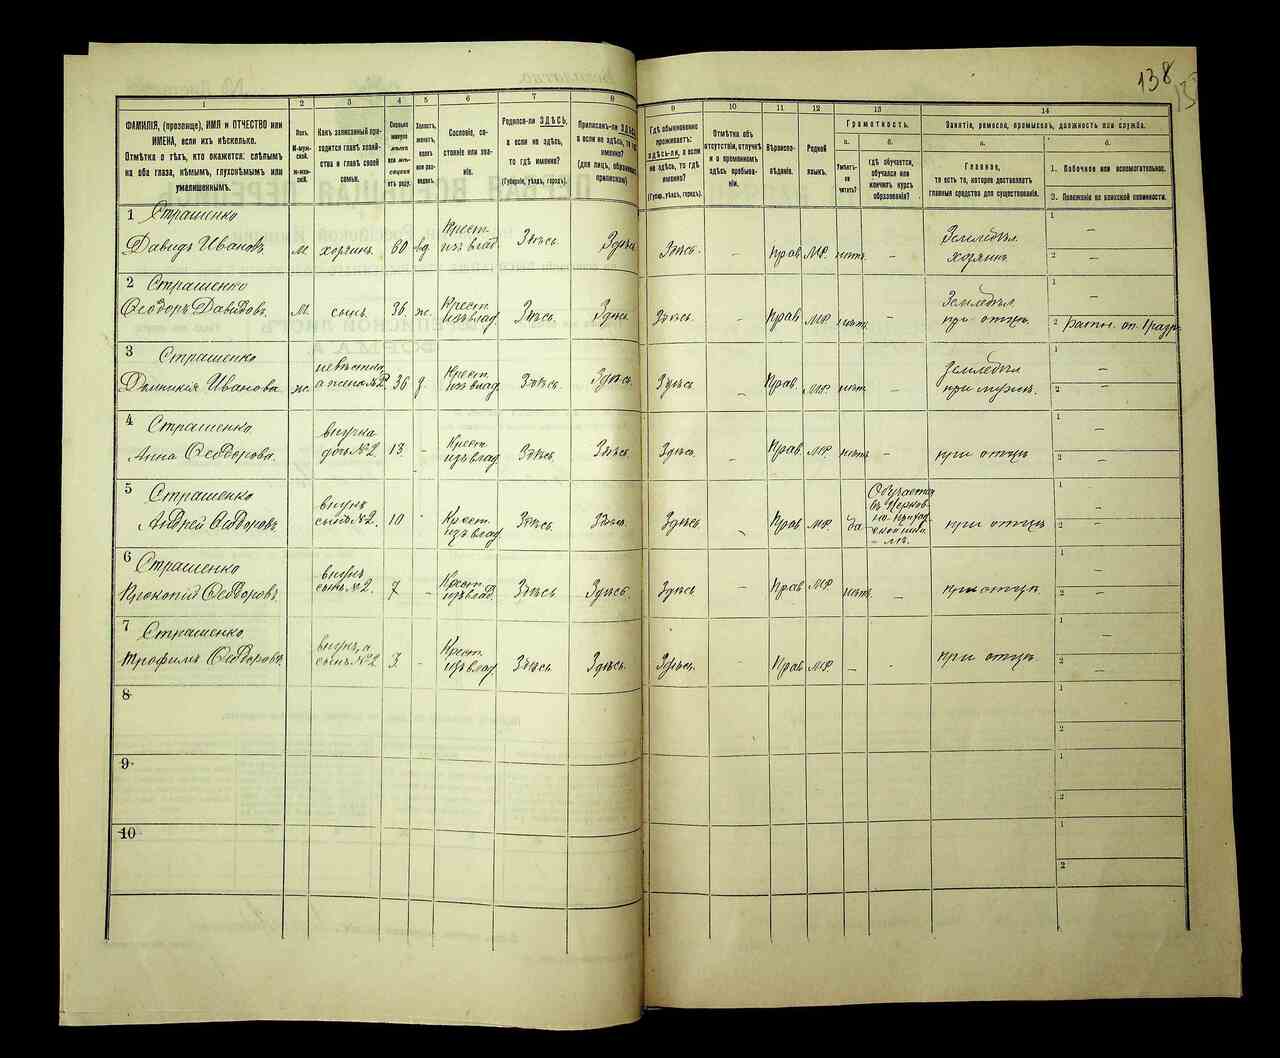 138
1
2
3
4
5
6
7
8
9
10
11
12
13
14
ФАМИЛІЯ, (прозвище), ИМЯ и ОТЧЕСТВО или
ИМЕНА, если ихъ нѣсколько.
Отмѣтка о тѣхъ, кто окажется: слѣпымъ
на оба глаза, нѣмымъ, глухонѣмымъ или
умалишеннымъ.
Полъ.
М-муж-
ской.
Ж-жен-
скій.
Какъ записанный при-
ходится главѣ хозяй-
ства и главѣ своей
семьи.
Сколько
минуло
лѣтъ
или мѣ-
сяцевъ
отъ роду.
Холостъ,
женатъ,
вдовъ
или раз-
веденъ.
Сословіе, со-
стояніе или зва-
ніе.
Родился-ли ЗДѢСЬ,
а если не здѣсь,
то гдѣ именно?
(Губернія, уѣздъ, городъ).
Приписанъ-ли ЗДѢСЬ,
а если не здѣсь, то гдѣ
именно?
(для лицъ, обязанныхъ
припискою)
Гдѣ обыкновенно
проживаетъ:
здѣсь-ли, а если
не здѣсь, то гдѣ
именно?
(Губер., уѣздъ, городъ).
Отмѣтка объ
отсутствіи, отлучкѣ
и о временномъ
здѣсь пребыва-
ніи.
Вѣроиспо-
вѣданіе.
Родной
языкъ.
Грамотность.
а.
Умѣетъ-
ли
читать?
б.
гдѣ обучается,
обучался или
кончилъ курсъ
образованія?
Занятія, ремесло, промыселъ, должность или служба.
а.
Главное,
то есть то, которое доставляетъ
главныя средства для существованія.
б.
1. Побочное или вспомогательное.
2. Положеніе по воинской повинности.
1 Страшенко
Давидъ Ивановъ м хозяинъ 60 вд Крест. изъ влад Здѣсь. Здѣсь Здѣсь. – Прав МР. нѣтъ – Земледѣл. хозяинъ 1 – 2 –
2 Страшенко
Ѳеодоръ Давидовъ. м. сынъ 36. ж. Крест. изъ влад. Здѣсь. Здѣсь Здѣсь. – Прав МР нѣтъ – Земледѣл при отцѣ. 1 – 2 ратн. оп. 1 разр.
3 Страшенко
Домникія Иванова ж. невѣстка, а жена №2. 36 з. Крест. изъ влад. Здѣсь. Здѣсь. Здѣсь – Прав. МР. нѣт – Земледѣл при мужѣ. 1 – 2 –
4 Страшенко
Анна Ѳеодорова. внучка дочь №2 13 – Крест. изъ влад Здѣсь. Здѣсь. Здѣсь. – Прав. МР. нѣтъ – при отцѣ 1 – 2 –
5 Страшенко
Андрей Ѳеодоровъ внукъ сынъ №2. 10 – Крест. изъ влад Здѣсь. Здѣсь. Здѣсь. – Прав МР. да Обучается въ Церков-но-приход-ской шко-лѣ. при отцѣ 1 – 2 –
6 Страшенко
Прокопій Ѳеодоровъ. внукъ сынъ №2. 7 – Крест. изъ влад. Здѣсь. Здѣсь. Здѣсь – Прав МР. нѣтъ – при отцѣ 1 – 2 –
7 Страшенко
Трофимъ Ѳеодоровъ. внукъ, а сынъ №2 3 – Крест. изъ влад. Здѣсь Здѣсь. Здѣсь. – Прав МР. – – при отцѣ 1 – 2 –
8 1 2
9 1 2
10 1 2